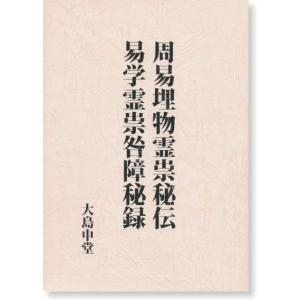 周易埋物霊祟秘伝
易学霊祟咎障秘録
大島中堂